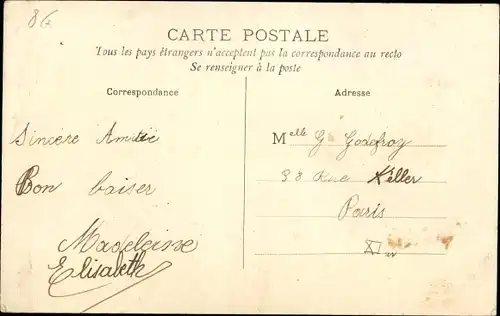 86
CARTE POSTALE
Tous les pays étrangers n'acceptent pas la correspondance au recto
Se renseigner à la poste
Correspondance
Sincère Amitié
Bon baiser
Madeleine
Elisabeth
Adresse
Melle G. Godefroy
38 Rue Keller
Paris
XI